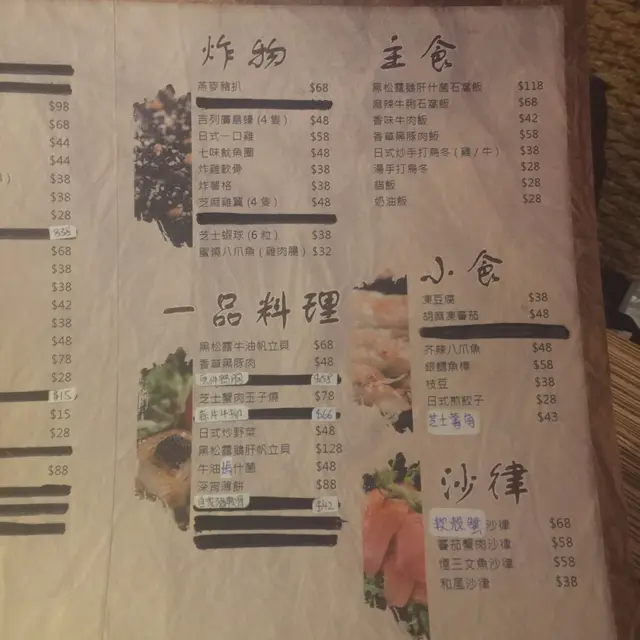 $98
$68
$44
$44
$38
$38
$28
$38
$68
$38
$38
$42
$38
$48
$78
$28
$15
$15
$28
$88
炸物
燕麥豬扒 $68
吉列廣島蠔 (4隻) $48
日式一口雞 $58
七味魷魚圈 $48
炸雞軟骨 $38
炸薯格 $38
芝麻雞翼 (4隻) $48
芝士蝦球 (6粒) $38
蜜燒八爪魚 (雞肉腸) $32
一品料理
黑松露牛油帆立貝 $68
香草黑豚肉 $48
芝士蟹肉玉子燒 $78
$66
日式炒野菜 $48
黑松露鵝肝帆立貝 $128
牛油什菌 $48
深宵薄餅 $88
$42
主食
黑松露鵝肝什菌石窩飯 $118
麻辣牛脷石窩飯 $68
香味牛肉飯 $42
香草黑豚肉飯 $58
日式炒手打烏冬 (雞/牛) $38
湯手打烏冬 $28
醋飯 $28
奶油飯 $28
小食
凍豆腐 $38
胡麻凍蕃茄 $48
芥辣八爪魚 $48
銀鱈魚棒 $58
枝豆 $38
日式煎餃子 $28
芝士薯角 $43
沙律
軟殼蟹沙律 $68
蕃茄蟹肉沙律 $58
煙三文魚沙律 $58
和風沙律 $38